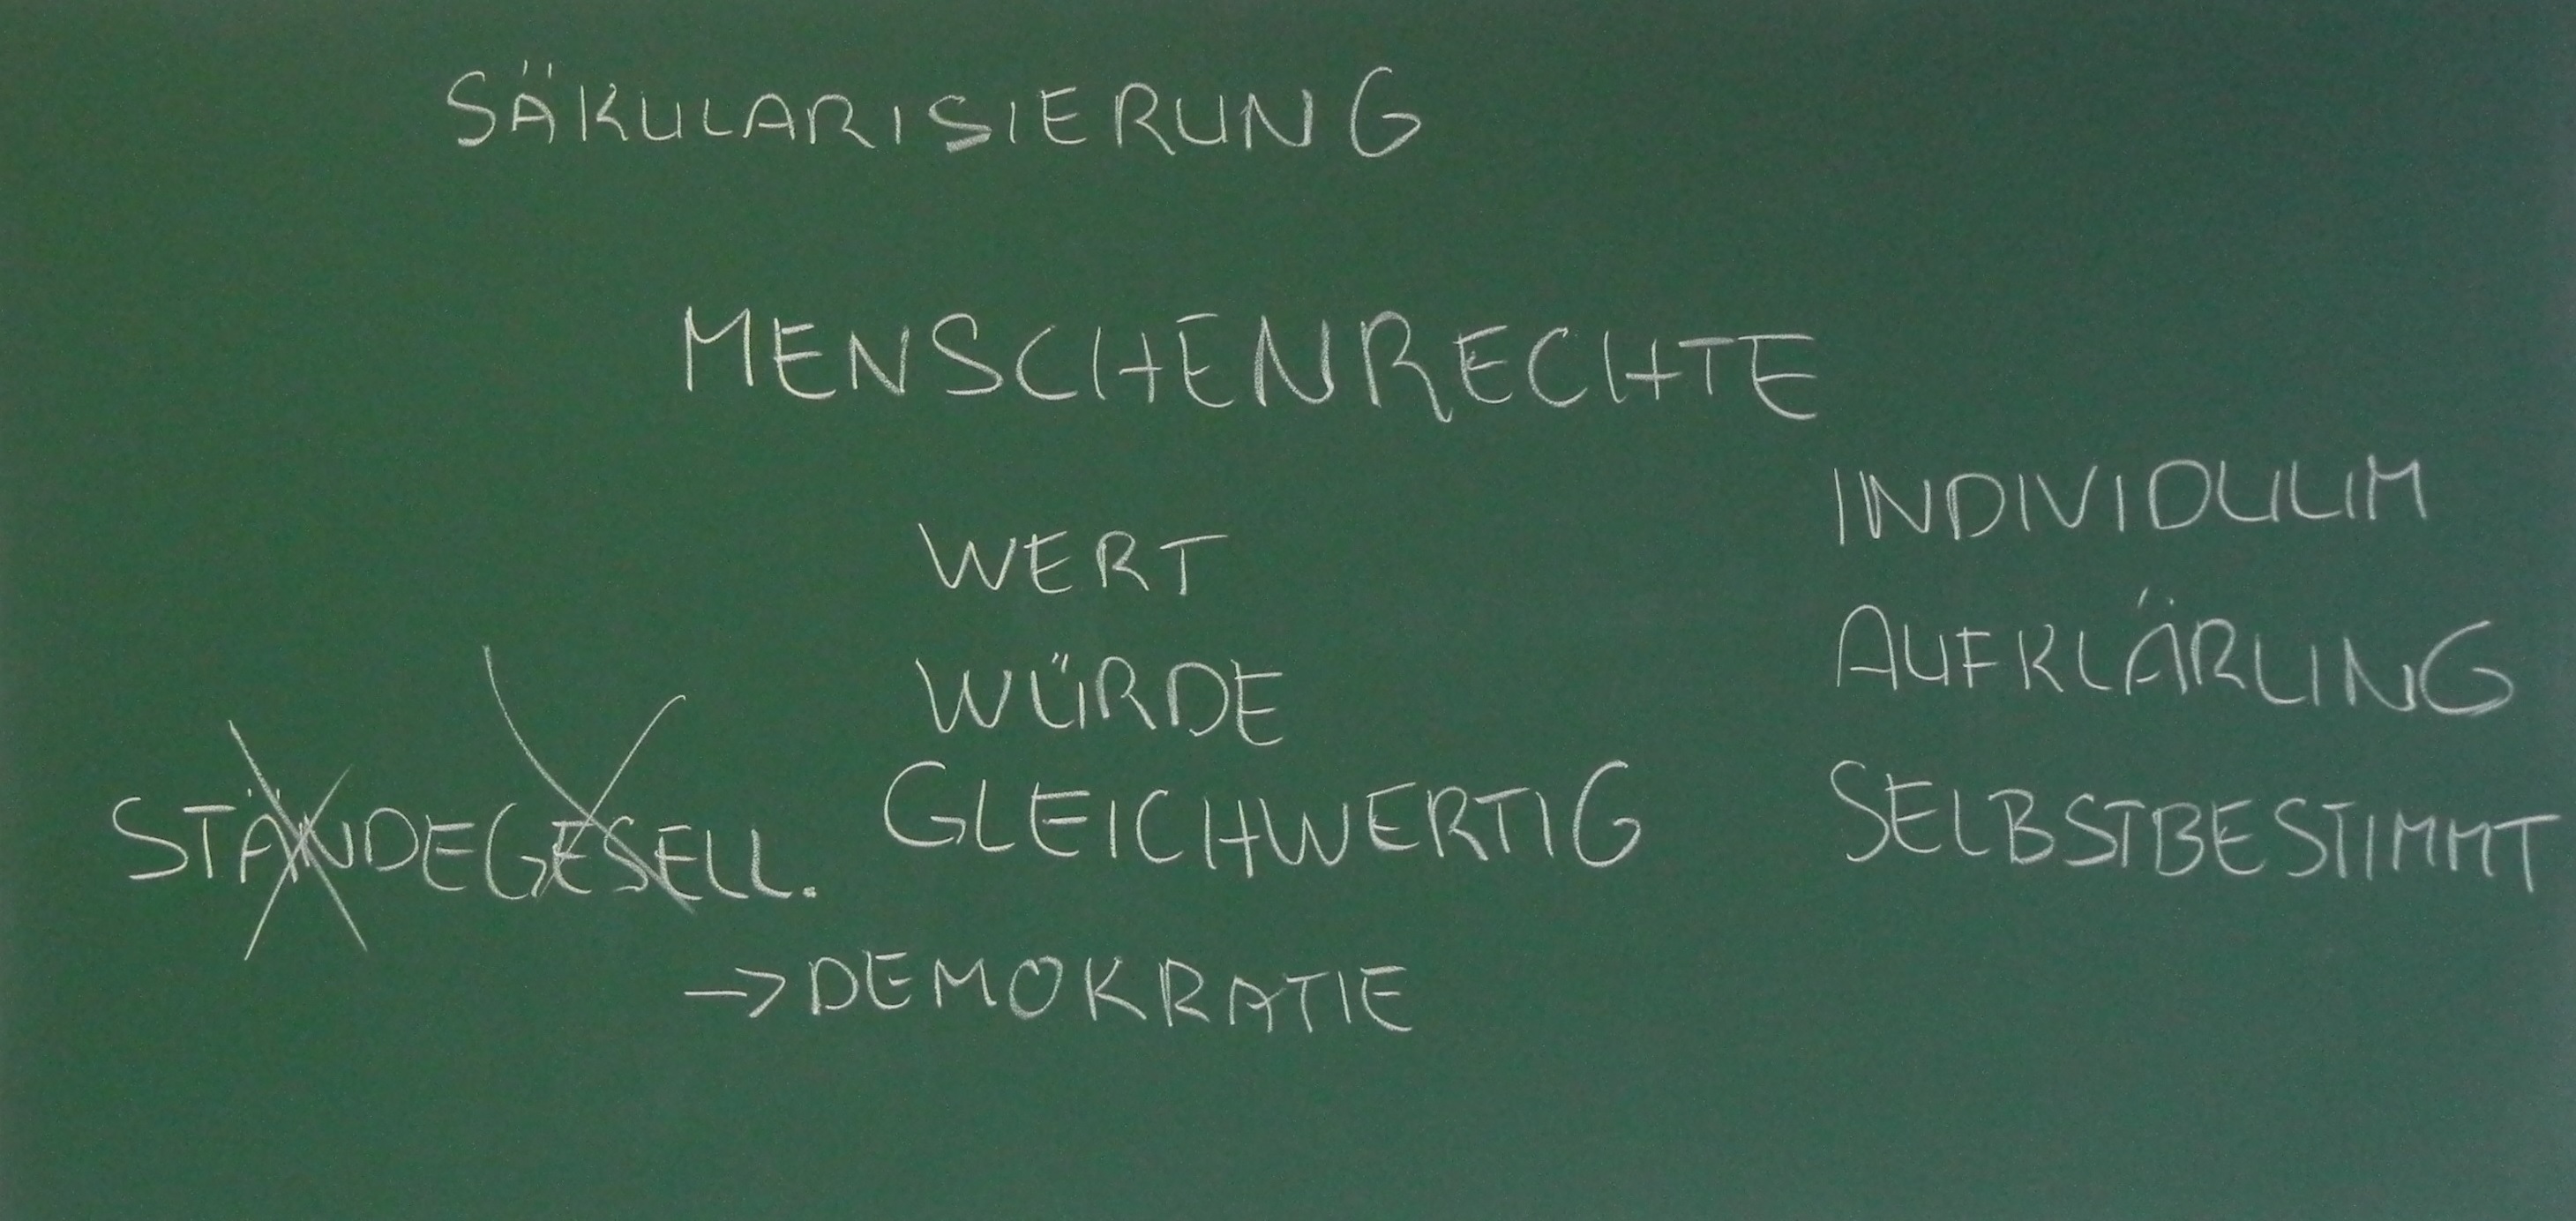 SÄKULARISIERUNG
MENSCHENRECHTE
INDIVIDUUM
WERT
AUFKLÄRUNG
WÜRDE
SELBSTBESTIMMT
GLEICHWERTIG
STÄNDEGESELL.
→ DEMOKRATIE